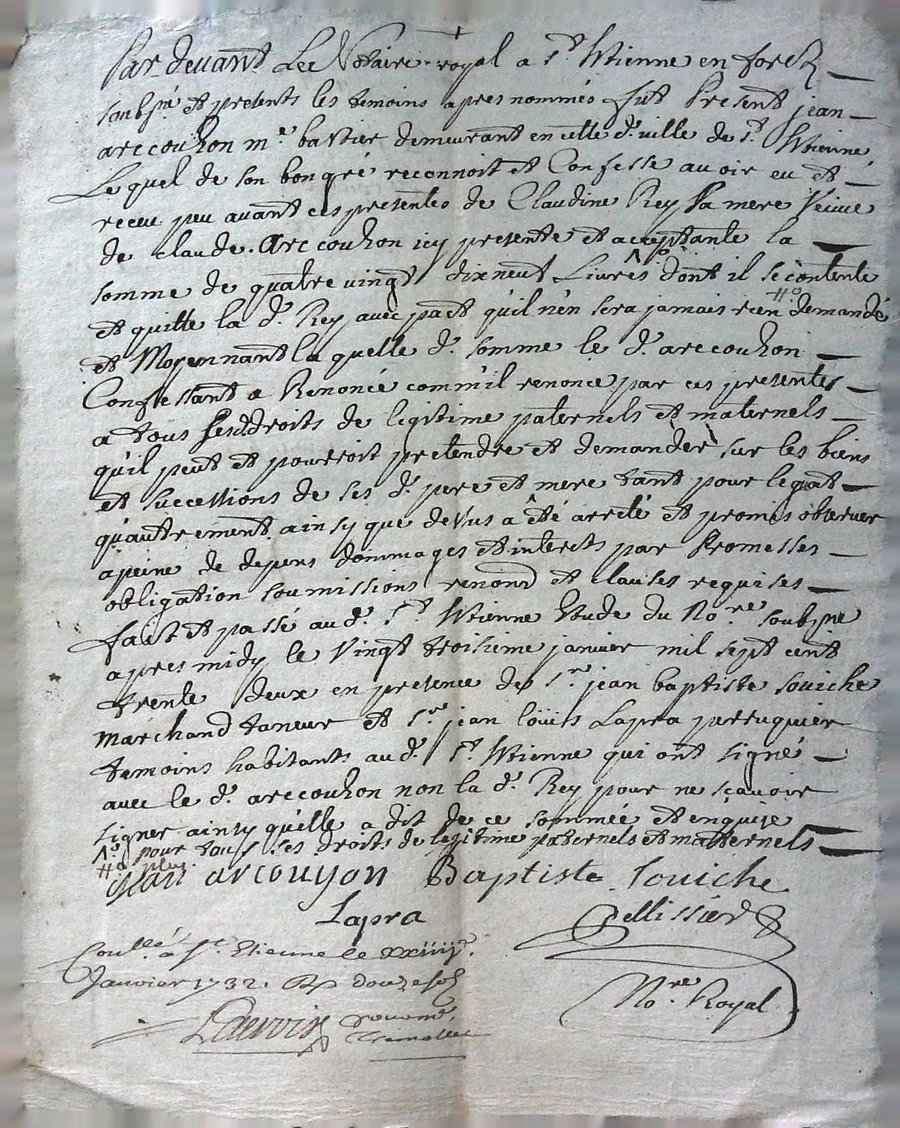 Par devant Le Notaire royal a St. Etienne en forez
soubsné et presents les temoins apres nommés fut Present jean
arccouhon me. bastier demeurant en cette de. ville de St. Etienne
Lequel de son bon gré reconnoit et Confesse avoir eu et
receu peu avant ces presentes de Claudine Rey Sa mere Veuve
de claude Arccouhon icy presente et acceptante la
somme de quatre vingt dix neuf Livres 1o dont il se contente
et quitte la de. Rey avec pact qu'il n'en sera jamais rien #o demandé
et Moyennant la quelle de. somme le d. arccouhon
Confessant a Renoncé comm'il renonce par ces presentes
a tous sesd. droits de legitime paternels et maternels
qu'il peut et pourroit pretendre et demander sur les biens
et successions de ses d. pere et mere tant pour legat
qu'autrement, ainsy que dessus a été arrêté et promis observer
a peine de depens dommages et interets par Promesses
obligation soumissions renond et clauses requises
fait et passé aud. St. Etienne Etude du Nore. soubsne
apres midy le Vingt troisieme janvier mil sept cent
trente deux en presence de Sr. jean baptiste souiche
marchand taneur et Sr. jean loüis Lapra perruquier
temoins habitants aud. St. Etienne qui ont signé
avec le d. arccouhon non la de. Rey pour ne scavoir
signer ainsy qu'elle a dit de ce sommée et enquise
1o pour tous ses droits de legitime paternels et maternels
#o plus
jean arcouyon Baptiste Souiche
Lapra
Pellissier
Nore. Royal
Conllé. a St. Etienne le xxiiiie.
Janvier 1732. Rp douze sols